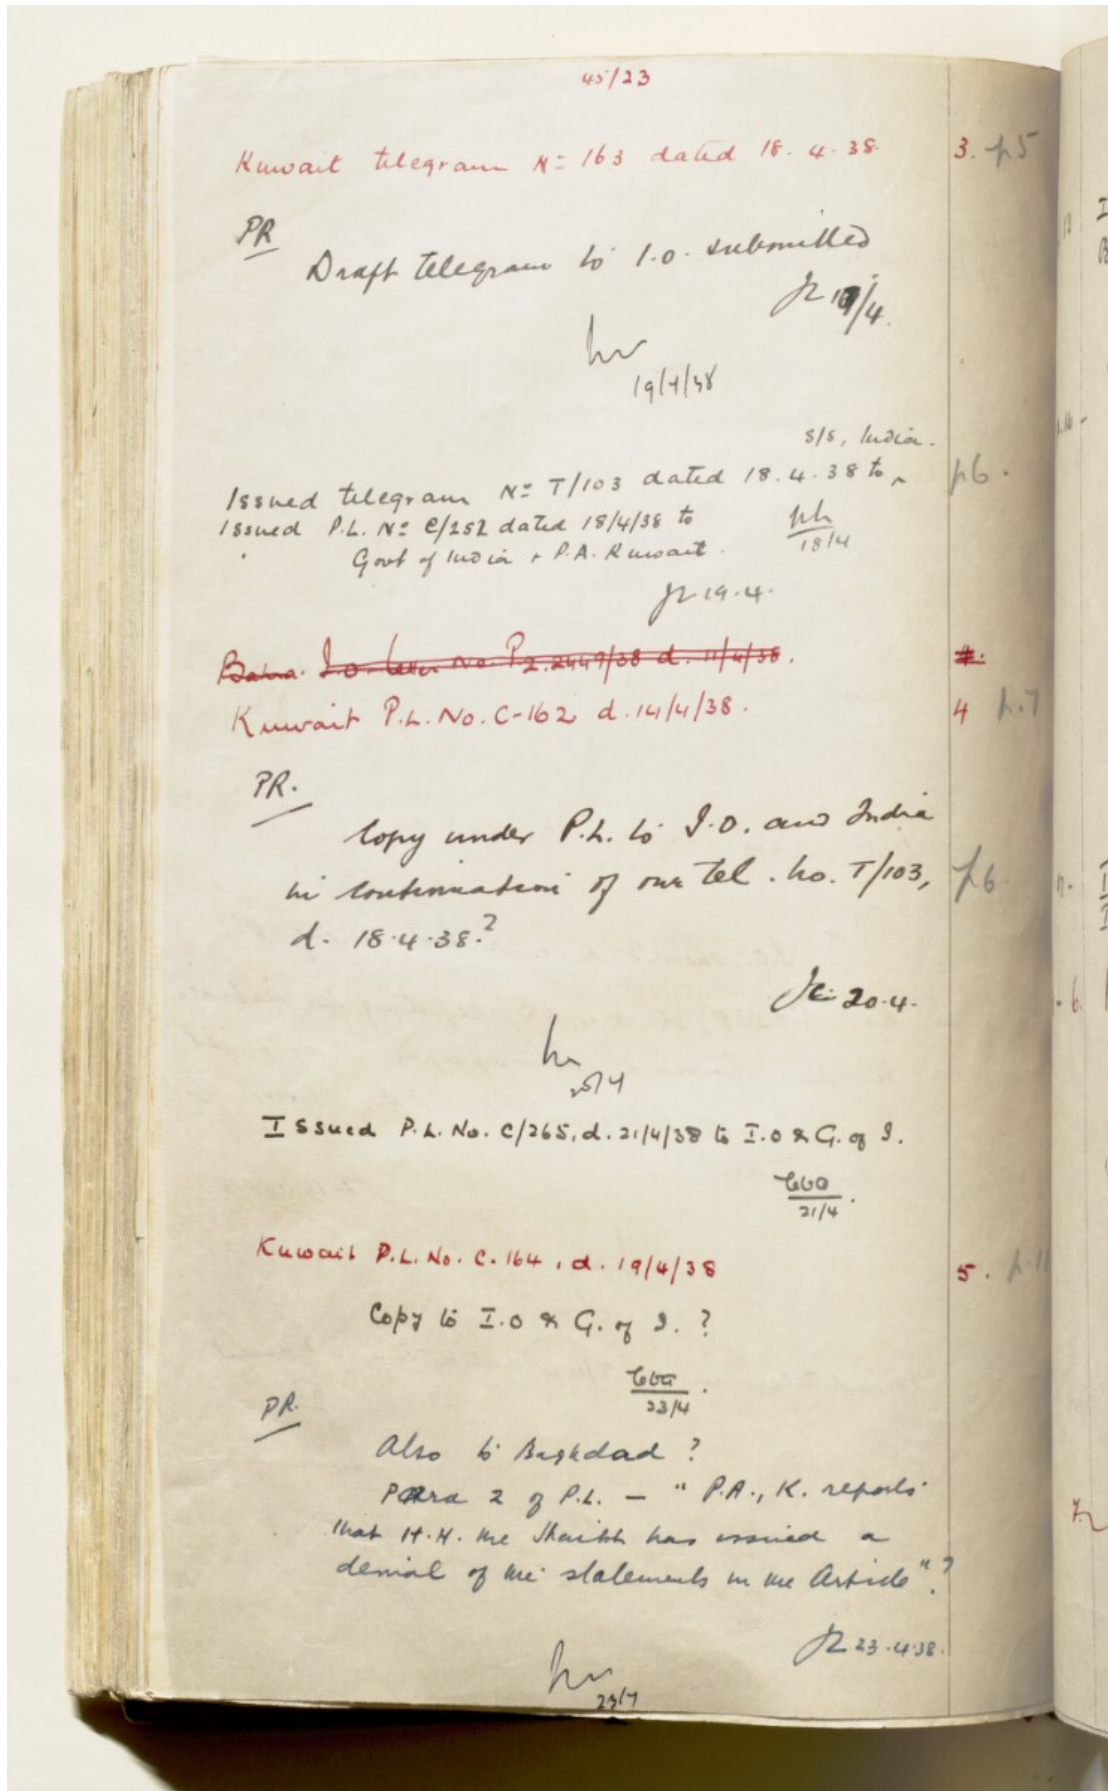 45/23
Kuwait telegram No 163 dated 18.4.38. 3. p5
PR
Draft telegram to I.O. submitted
19/4.
19/4/38
S/S, India.
Issued telegram No T/103 dated 18.4.38 to ^ p6.
Issued P.L. No C/252 dated 18/4/38 to
18/4
Govt of India + P.A. Kuwait.
19.4.
I.O. letter No. P.Z. 2449/38 d. 11/4/38. 4.
Kuwait P.L. No. C-162 d. 14/4/38. 4 p.7
PR.
Copy under P.L. to I.O. and India
in continuation of our tel. No. T/103, p6.
d. 18.4.38.?
20.4.
20/4
Issued P.L. No. C/265, d. 21/4/38 to I.O & G. of I.
21/4.
Kuwait P.L. No. C-164, d. 19/4/38 5. p.11
Copy to I.O & G. of I. ?
23/4.
PR.
Also to Baghdad ?
Para 2 of P.L. — "P.A., K. reports
that H.H. the Shaikh has issued a
denial of the statements in the Article".?
23.4.38.
23/4